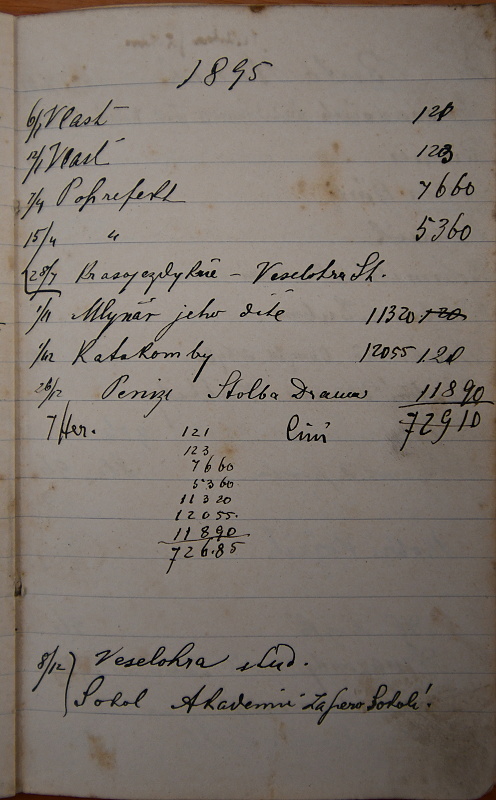 1895
6/1 Vlast 121
12/1 Vlast 123
7/4 Poprefekt 7660
15/4 " 5360
28/7 Krasojezdkyně - Veselohra St.
1/11 Mlynář jeho dítě 11320 120
1/12 Katakomby 12055 120
26/12 Peníze Štolba Drama 11890
7 Her. Činí 72910
121
123
7660
5360
11320
12055.
11890
726.85
8/12 Veselohra stud.
Sokol Akademii